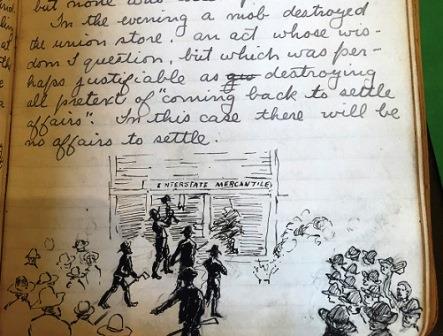 but none was
In the evening a mob destroyed
the union store, an act whose wis-
dom I question, but which was per-
haps justifiable as destroying
all pretext of "coming back to settle
affairs". In this case there will be
no affairs to settle.
INTERSTATE MERCANTILE